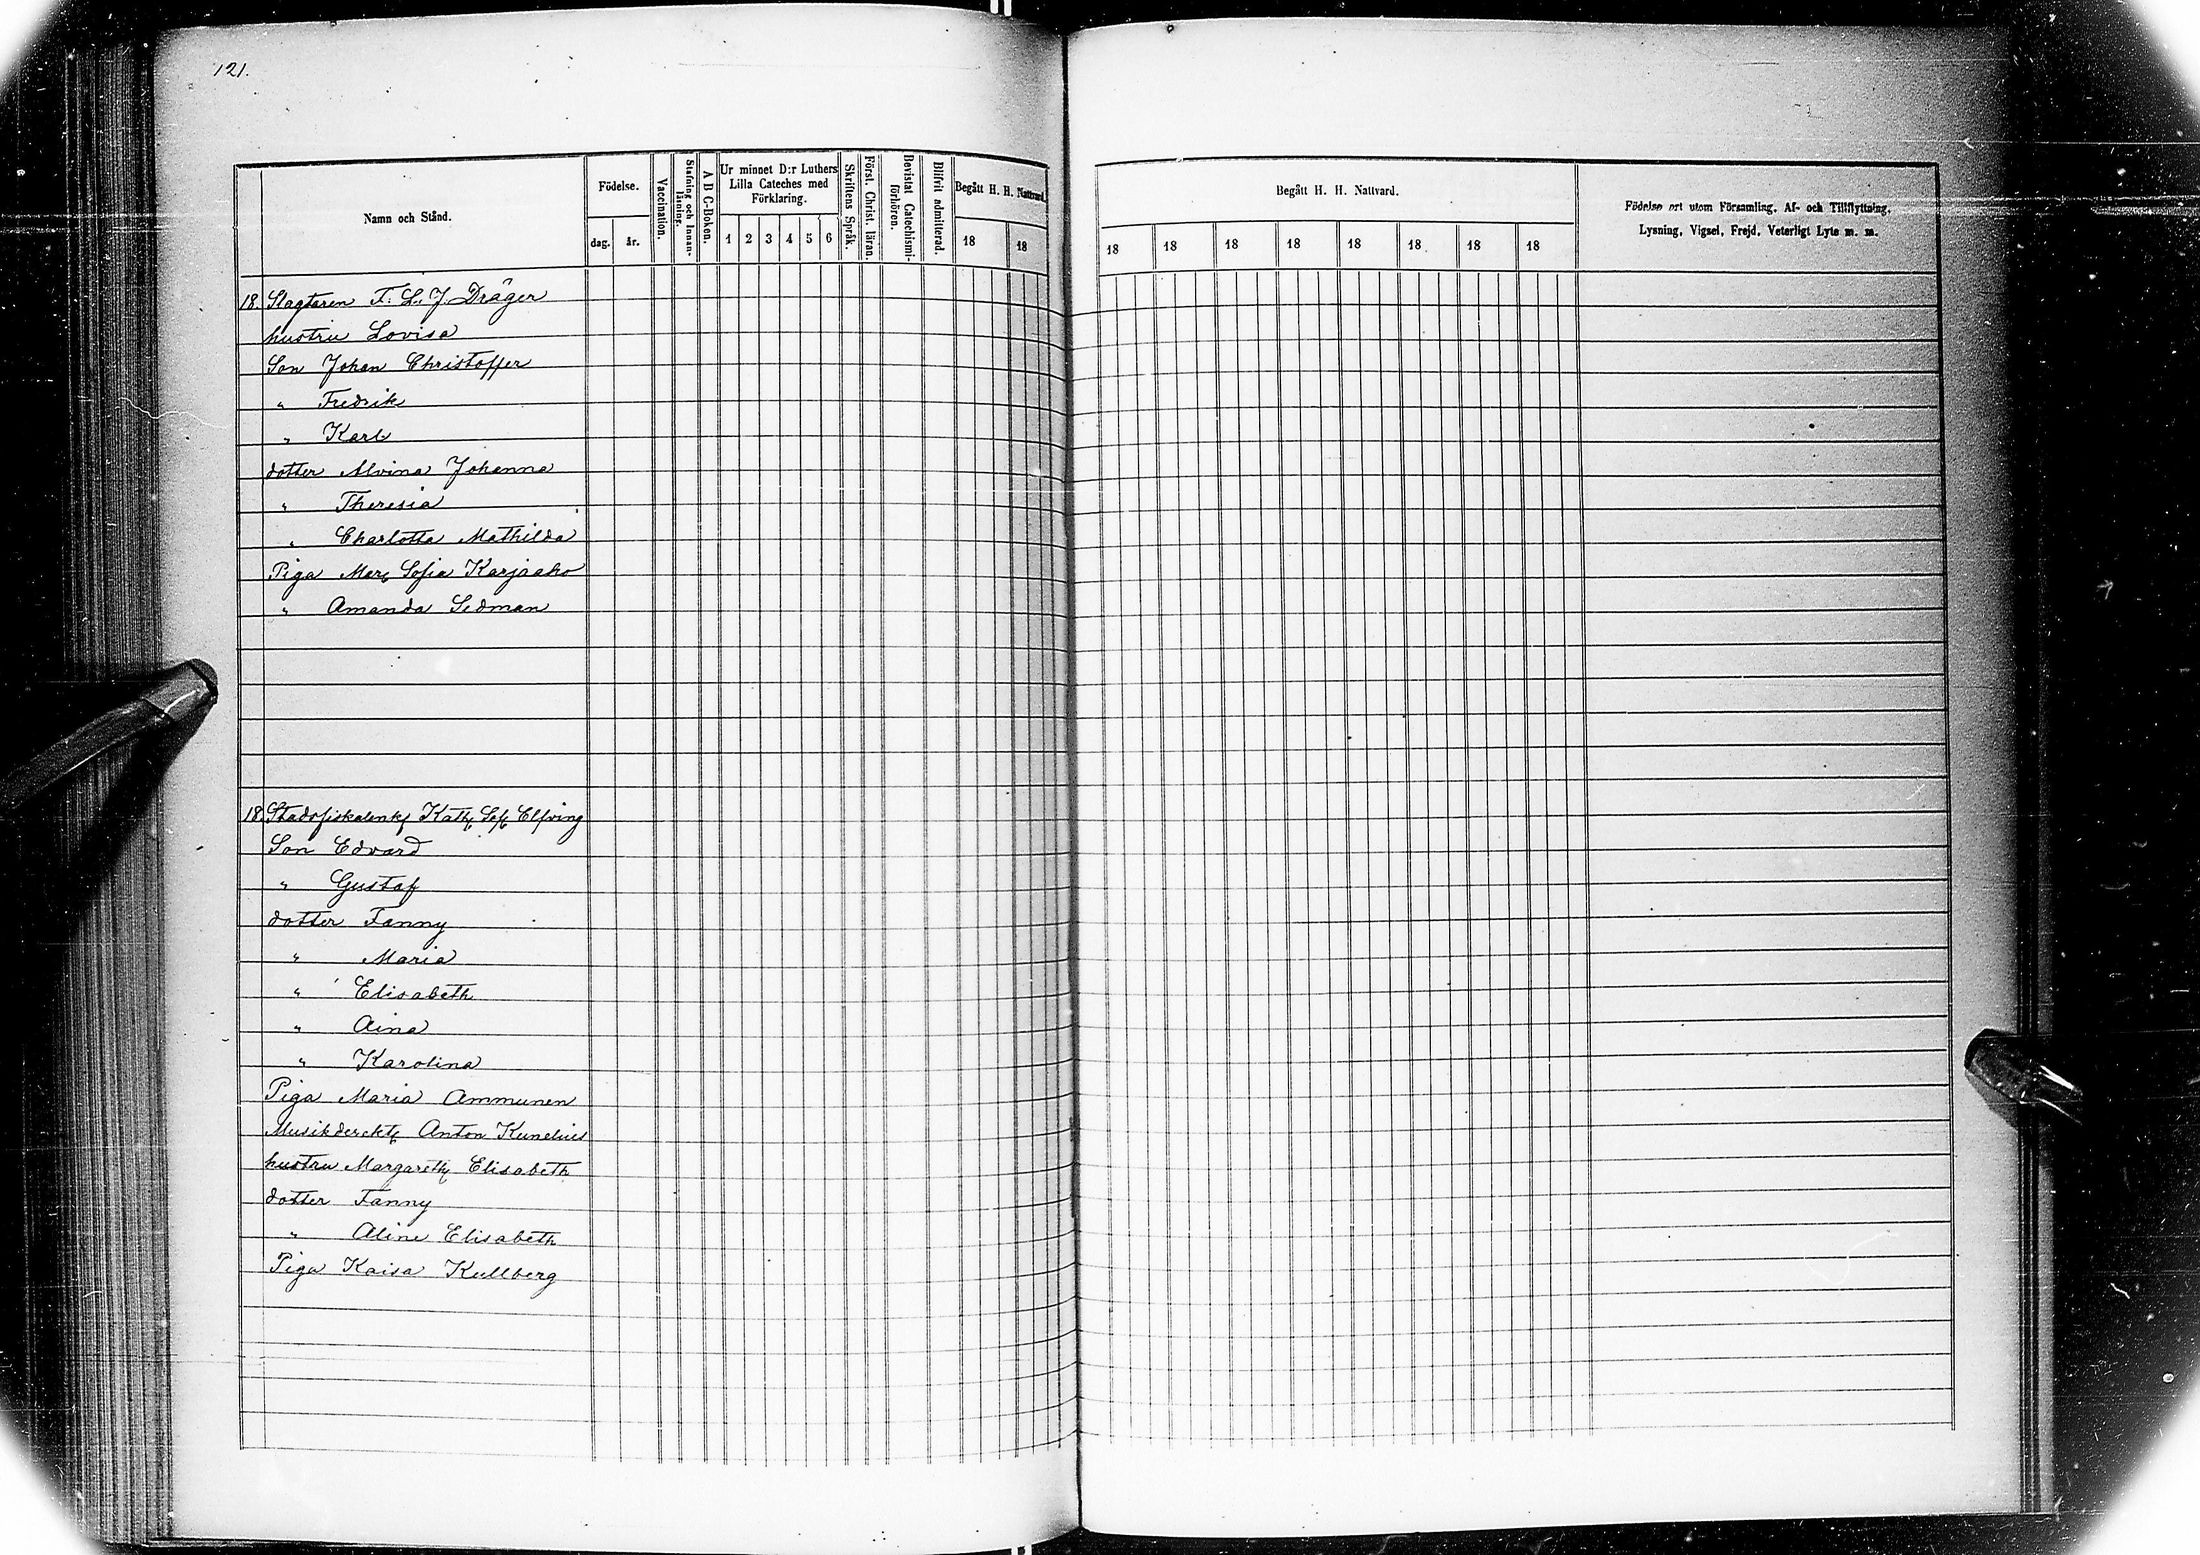 121.
Namn och Stånd.
Födelse.
dag.
år.
Vaccination.
Stafning och Innan-läsning.
A B C-Boken.
Ur minnet D:r Luthers
Lilla Cateches med
Förklaring.
1 2 3 4 5 6
Skriftens Språk.
Först. Christ. läran.
Bevistat Catechismi-förhören.
Blifvit admitterad.
Begått H. H. Nattvard.
18 18
Begått H. H. Nattvard.
18 18 18 18 18 18 18 18
Födelse ort utom Församling, Af- och Tillflyttning,
Lysning, Vigsel, Frejd, Veterligt Lyte m. m.
18. Slagtaren F. L. J. Dräger
hustru Lovisa
Son Johan Christoffer
" Fredrik
" Karl
dotter Alvina Johanna
" Theresia
" Charlotta Mathilda
Piga Mar. Sofia Karjaaho
" Amanda Sedman
18. Stadsfiskalenk. Kath. Sof. Elfving
Son Edvard
" Gustaf
dotter Fanny
" Maria
" Elisabeth
" Aina
" Karolina
Piga Maria Ammunen
Musikderekt. Anton Kunelius
hustru Margareth. Elisabeth
dotter Fanny
" Aline Elisabeth
Piga Kaisa Kullberg